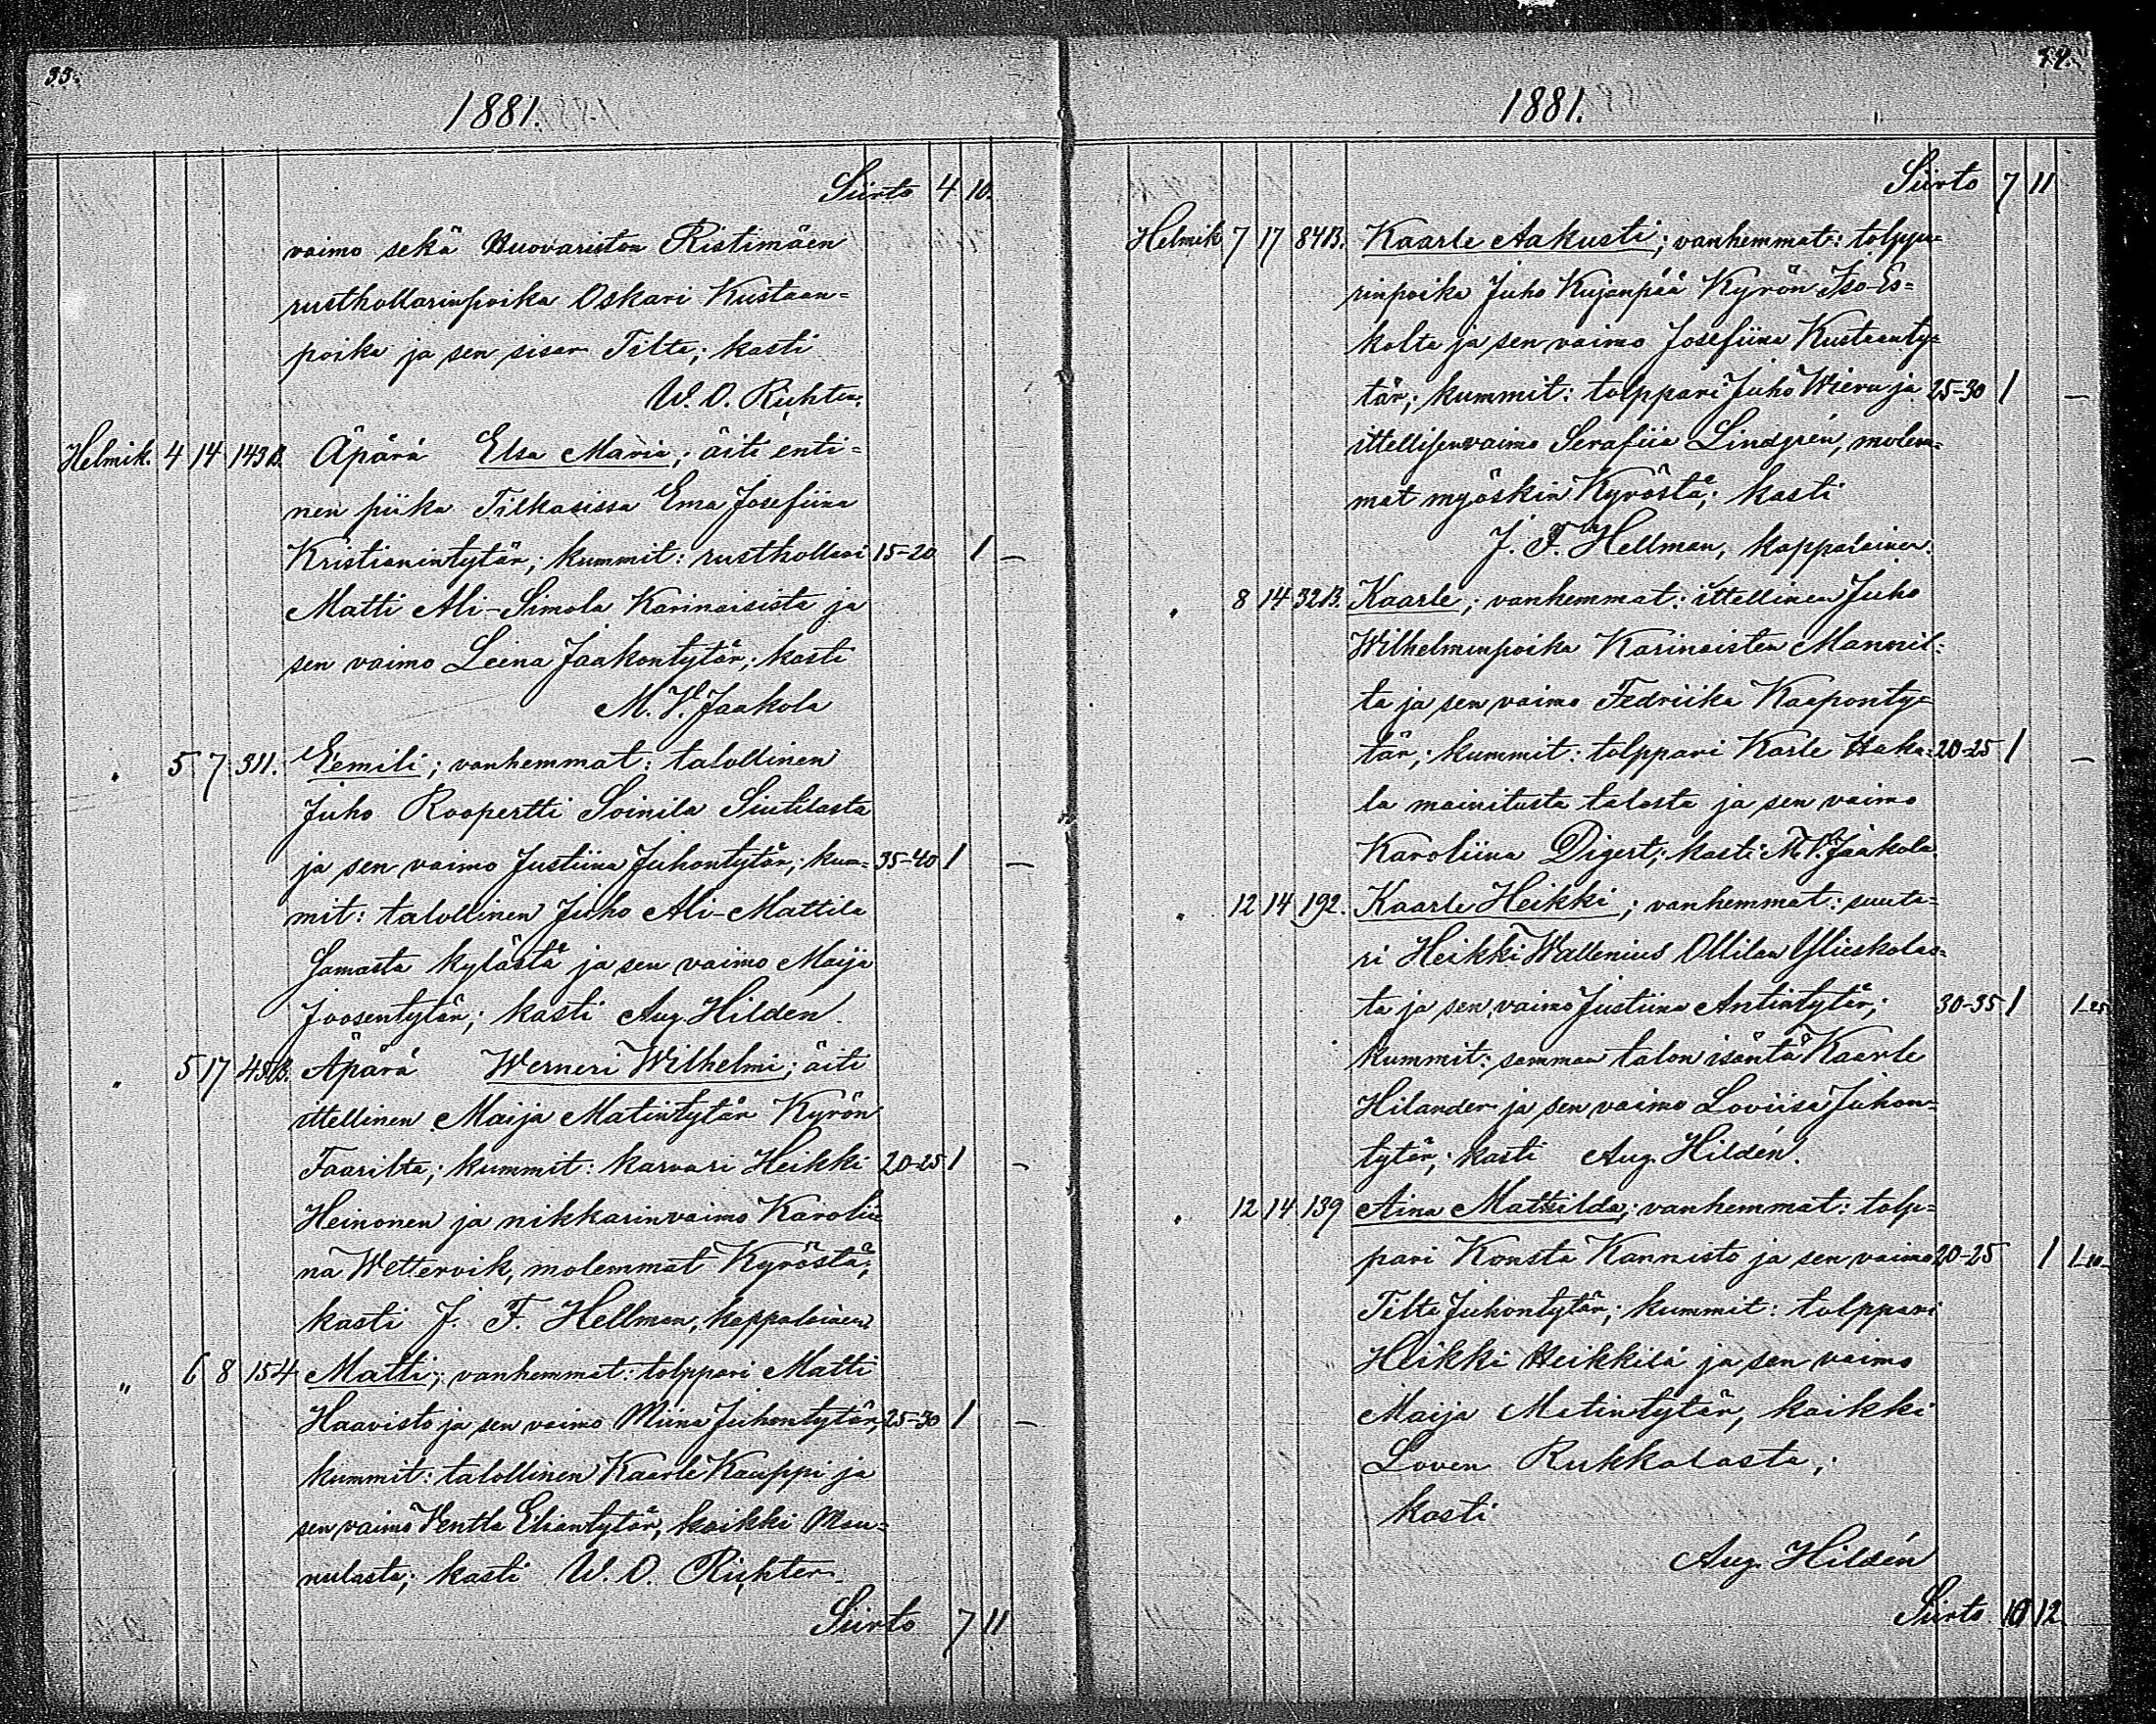 33.
1881.
Siirto 4 10.
vaimo sekä Huovariston Ristimäen
rusthollarinpoika Oskari Kustaan-
poika ja sen sisar Tilta; kasti
W. O. Richter.
Helmik. 4 14 143B. Äpärä Elsa Maria; äiti enti-
nen piika Tilkasissa Ema Josefiina
Kristianintytär; kummit: rusthollari 15-20 1 —
Matti Ali-Simola Karinaisista ja
sen vaimo Leena Jaakontytär; kasti
M. V. Jaakola
" 5 7 311. Eemili; vanhemmat: talollinen
Juho Roopertti Soinila Siutilasta
ja sen vaimo Justiina Juhontytär; kum- 35-40 1 —
mit: talollinen Juho Ali-Mattila
Samasta kylästä ja sen vaimo Maija
Joosentytär; kasti Aug. Hilden.
" 5 17 43B. Äpärä Werneri Wilhelmi; äiti
ittellinen Maija Matintytär Kyrön
Faarilta; kummit: karvari Heikki 20-25 1 —
Heinonen ja nikkarinvaimo Karolii
na Wettervik, molemmat Kyröstä;
kasti J. F. Hellman, kappalainen.
" 6 8 154 Matti; vanhemmat: tolppari Matti
Haavisto ja sen vaimo Miina Juhontytär, 25-30 1 —
kummit: talollinen Kaarle Kauppi ja
sen vaimo Eliantytär, kaikki Mau-
nulasta; kasti W. O. Richter.
Siirto 7 11
1881.
Siirto 7 11
Helmik 7 17 84B. Kaarle Aakusti; vanhemmat: tolppa-
rinpoika Juho Kujanpää Kyrön Iso-Es-
kolta ja sen vaimo Josefiina Kustaanty-
tär; kummit: tolppari Juho Wieru ja 25-30 1 —
ittellisenvaimo Serafiia Lindgrén, molem-
mat myöskin Kyröstä; kasti
J. F. Hellman, kappalainen.
" 8 14 32B. Kaarle; vanhemmat: ittellinen Juho
Wilhelminpoika Karinaisten Mannil-
ta ja sen vaimo Fedriika Kaaponty-
tär; kummit: tolppari Karle Haka- 20-25 1 —
la mainitusta talosta ja sen vaimo
Karoliina Digert; kasti M. V. Jaakola.
" 12 14 192. Kaarle Heikki; vanhemmat: suuta-
ri Heikki Wallenius Ollilan Ylieskolas-
ta ja sen vaimo Justiina Antintytär; 30-35 1 1-25
kummit: samman talon isäntä Kaarle
Hilander ja sen vaimo Loviisa Juhon-
tytär; kasti Aug. Hildén.
" 12 14 139 Aina Mathilda; vanhemmat: tolp-
pari Konsta Kannisto ja sen vaimo 20-25 1 1-10-
Tilta Juhontytär; kummit: tolppari
Heikki Heikkilä ja sen vaimo
Maija Matintytär, kaikki
Loven Rukkalasta;
kasti
Aug. Hildén
Siirto 10 12.